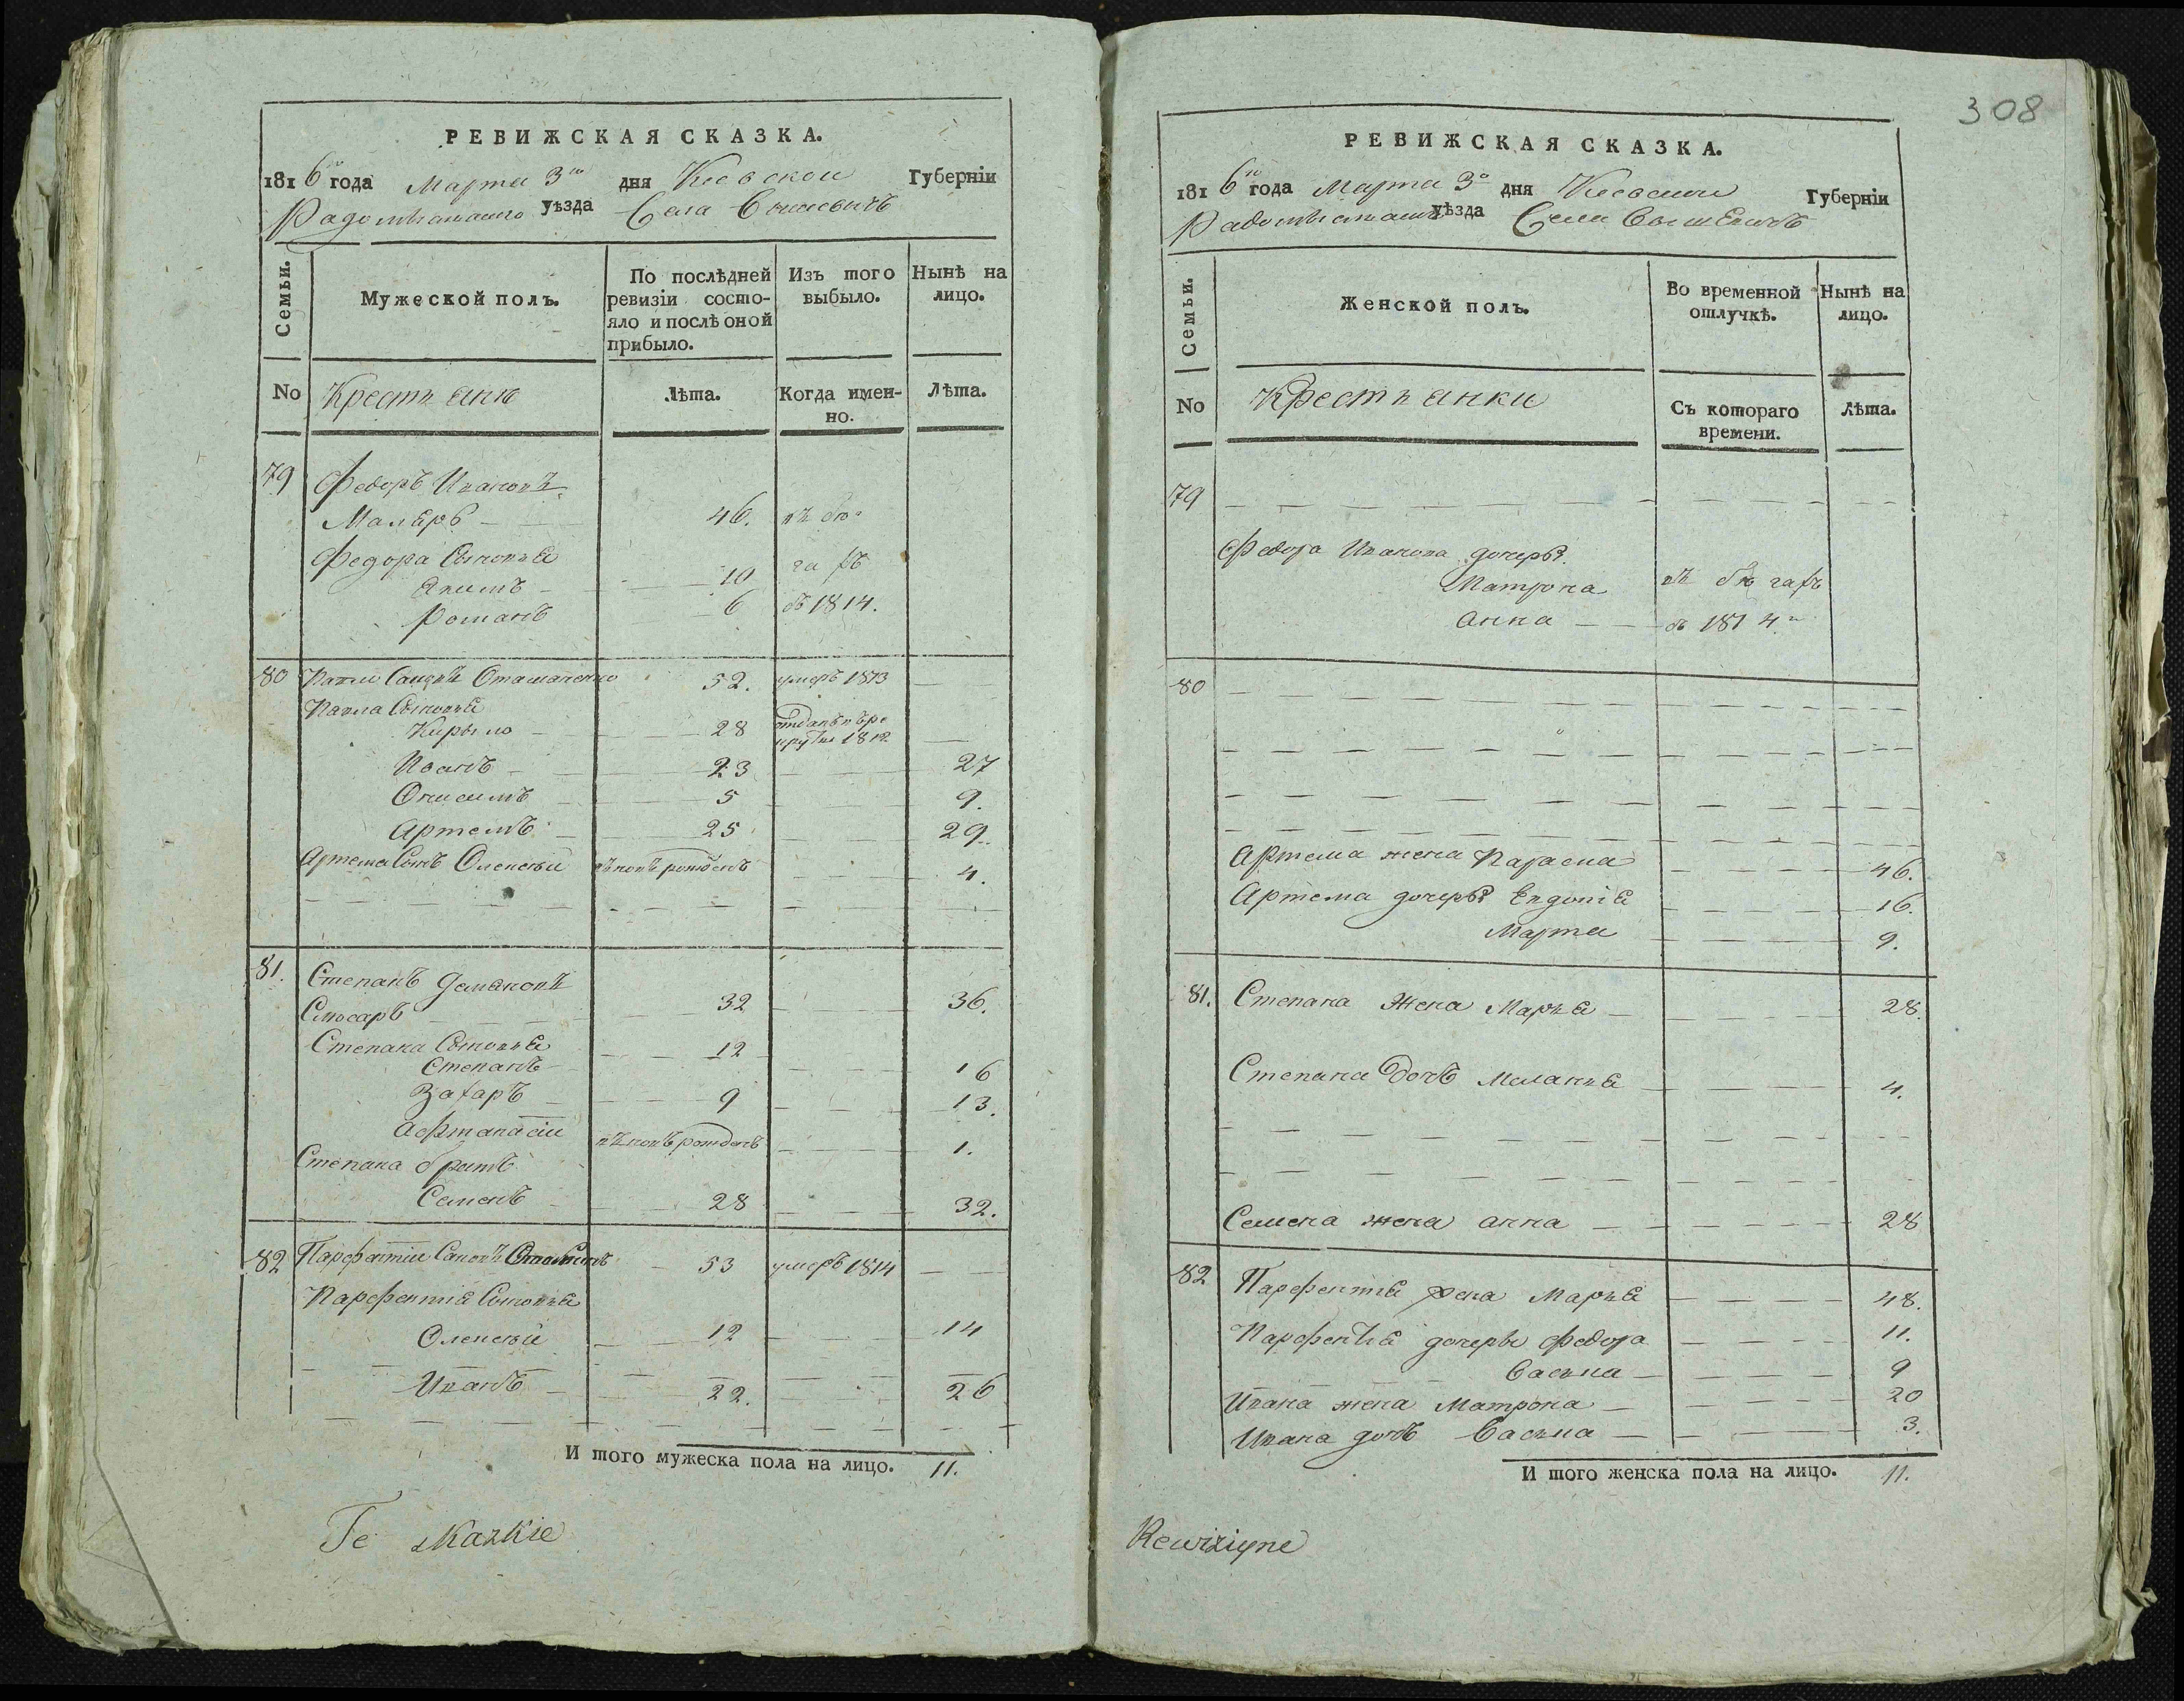 РЕВИЖСКАЯ СКАЗКА.
1816го года Марта 3го дня Киевской Губерніи
Радомысльскаго Уѣзда Села Вышевичъ
Семьи.
Мужеской полъ.
По послѣдней ревизіи состо-
яло и послѣ оной прибыло.
Изъ того выбыло.
Нынѣ на лицо.
No Крестьянъ
Лѣта.
Когда имен-
но.
Лѣта.
79 Федоръ Ивановъ
Маляръ 46. въ бѣ
Федора Сыновья
Якимъ 10 гахъ
Романъ 6 въ 1814.
80 Павелъ Савинъ Стаманенко 52. умеръ 1813
Павла Сыновья
Кирыло 28 отданъ въ ре
круты 1812
Иванъ 23 27
Онисимъ 5 9.
Артемъ 25 29.
Артема Сынъ Олексѣй вновъ рожденъ 4.
81. Степанъ Демяновъ
Слюсаръ 32 36.
Степана Сыновья
Степанъ 12 16
Захаръ 9 13.
Афтанасій вновъ рожденъ 1.
Степана братъ
Семенъ 28 32.
82 Парфентій Савовъ 53 умеръ 1814
Парфентія Сыновья
Олексѣй 12 14
Иванъ 22. 26
И того мужеска пола на лицо. 11.
Te skazkie
308
РЕВИЖСКАЯ СКАЗКА.
1816го года Марта 3го дня Киевской Губерніи
Радомысльскаго Уѣзда Села Вышевичъ
Семьи.
Женской полъ.
Во временной отлучкѣ.
Нынѣ на лицо.
No Крестьянки
Съ котораго времени.
Лѣта.
79
Федора Иванова дочеры
Матрона въ бѣгахъ
Анна въ 1814го
80
Артема жена Параска 46.
Артема дочеры Евдокія 16.
Марта 9.
81. Степана Жена Марья 28.
Степана Дочь Меланья 4.
Семена жена Анна 28
82 Парфентія жена Марья 48.
Парфентія дочеры Федора 11.
Васька 9
Ивана жена Матрона 20
Ивана дочь Васька 3.
И того женска пола на лицо. 11.
Rewiziyne